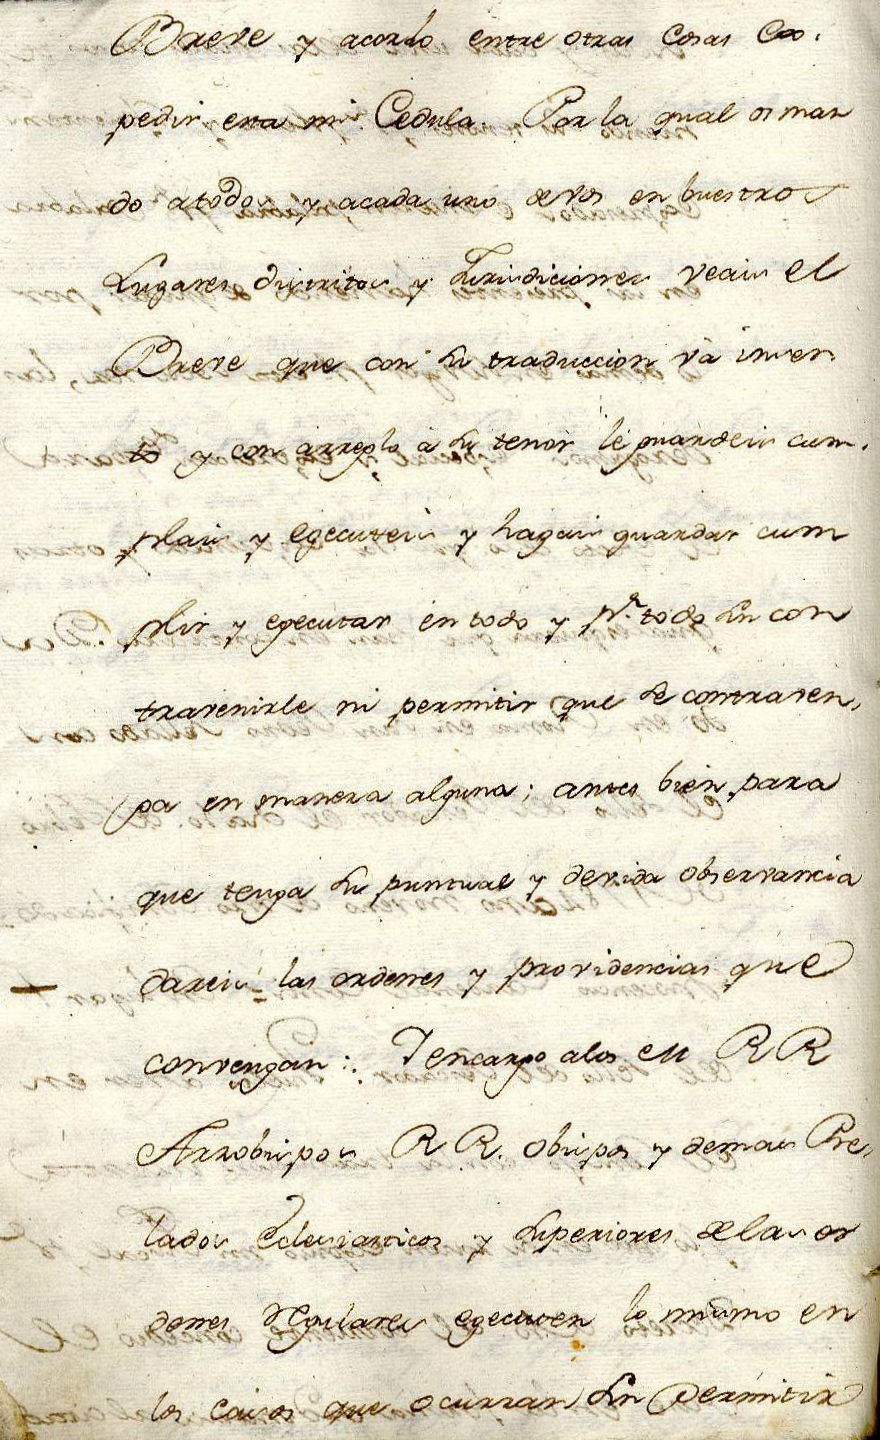 Breve y acordo entre otras cosas ex-
pedir esta mi Cedula. Por la qual os man
do atodos y acada uno de vos en buestros
Lugares distritos y Jurisdiciones veais el
Breve que con su traduccion va incer
to y con arreglo a su tenor le guardeis cum-
plais y egecuteis y hagais guardar cum
plir y egecutar en todo y pr. todo sin con
travenirle ni permitir que se contraven-
ga en manera alguna; antes bien para
que tenga su puntual y devida observancia
dareis las ordenes y providencias que
convengan: Y encargo alos M RR
Arzobispos RR. obispos y demas Pre-
lados Eclesiasticos y superiores delas or
denes Regulares egecuten lo mismo en
los casos que ocurran sin permitir